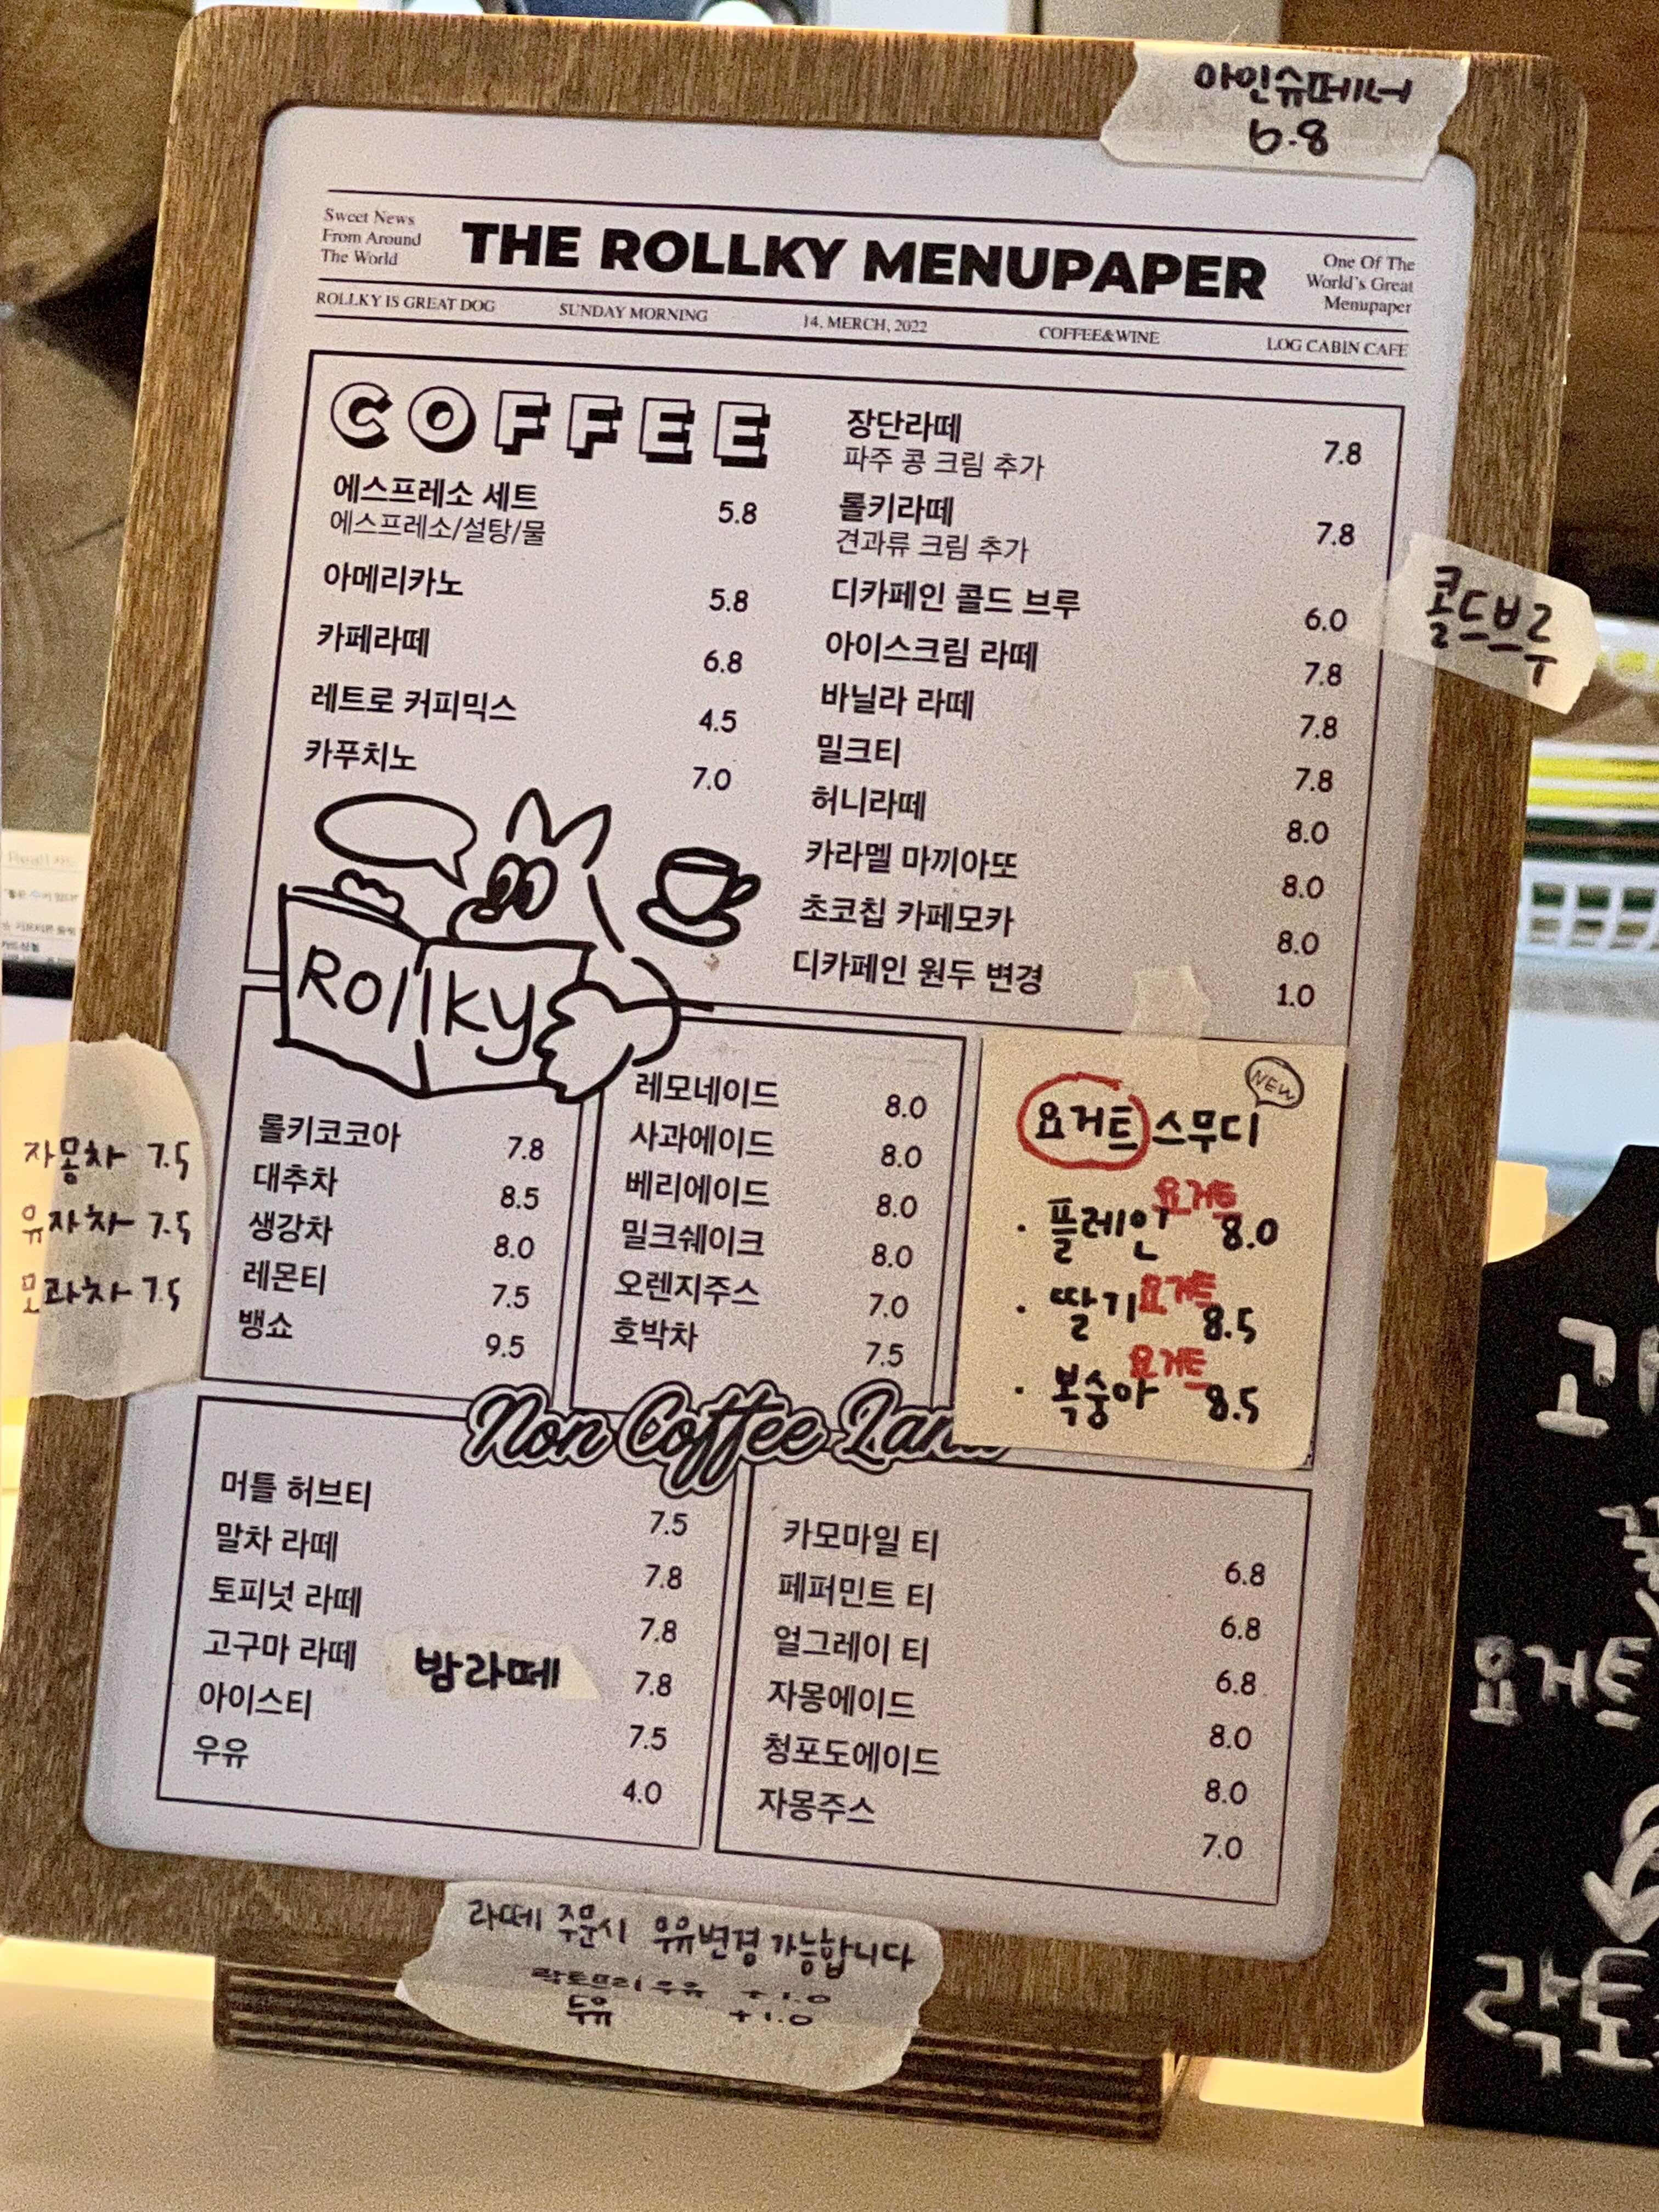 아인슈페너
6.8
Sweet News
From Around
The World
THE ROLLKY MENUPAPER
One Of The
World's Great
Menupaper
ROLLKY IS GREAT DOG SUNDAY MORNING 14, MERCH, 2022 COFFEE&WINE LOG CABIN CAFE
COFFEE
에스프레소 세트 5.8
에스프레소/설탕/물
아메리카노 5.8
카페라떼 6.8
레트로 커피믹스 4.5
카푸치노 7.0
장단라떼 7.8
파주 콩 크림 추가
롤키라떼 7.8
견과류 크림 추가
디카페인 콜드 브루 6.0
콜드브루
아이스크림 라떼 7.8
바닐라 라떼 7.8
밀크티 7.8
허니라떼 8.0
카라멜 마끼아또 8.0
초코칩 카페모카 8.0
디카페인 원두 변경 1.0
Rollky
자몽차 7.5
유자차 7.5
모과차 7.5
롤키코코아 7.8
대추차 8.5
생강차 8.0
레몬티 7.5
뱅쇼 9.5
레모네이드 8.0
사과에이드 8.0
베리에이드 8.0
밀크쉐이크 8.0
오렌지주스 7.0
호박차 7.5
NEW
요거트 스무디
· 플레인 요거트 8.0
· 딸기 요거트 8.5
· 복숭아 요거트 8.5
Non Coffee Land
머틀 허브티 7.5
말차 라떼 7.8
토피넛 라떼 7.8
고구마 라떼 밤라떼 7.8
아이스티 7.5
우유 4.0
카모마일 티 6.8
페퍼민트 티 6.8
얼그레이 티 6.8
자몽에이드 8.0
청포도에이드 8.0
자몽주스 7.0
라떼 주문시 우유변경 가능합니다
락토프리 우유 +1.0
두유 +1.0
요거트